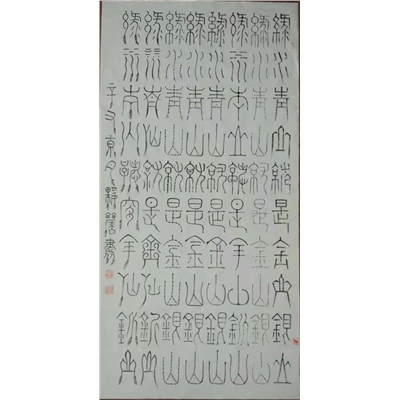 綠水青山就是金山銀山
綠水青山就是金山銀山
綠水青山就是金山銀山
綠水青山就是金山銀山
綠水青山就是金山銀山
綠水青山就是金山銀山
綠水青山就是金山銀山
綠水青山就是金山銀山
辛丑書